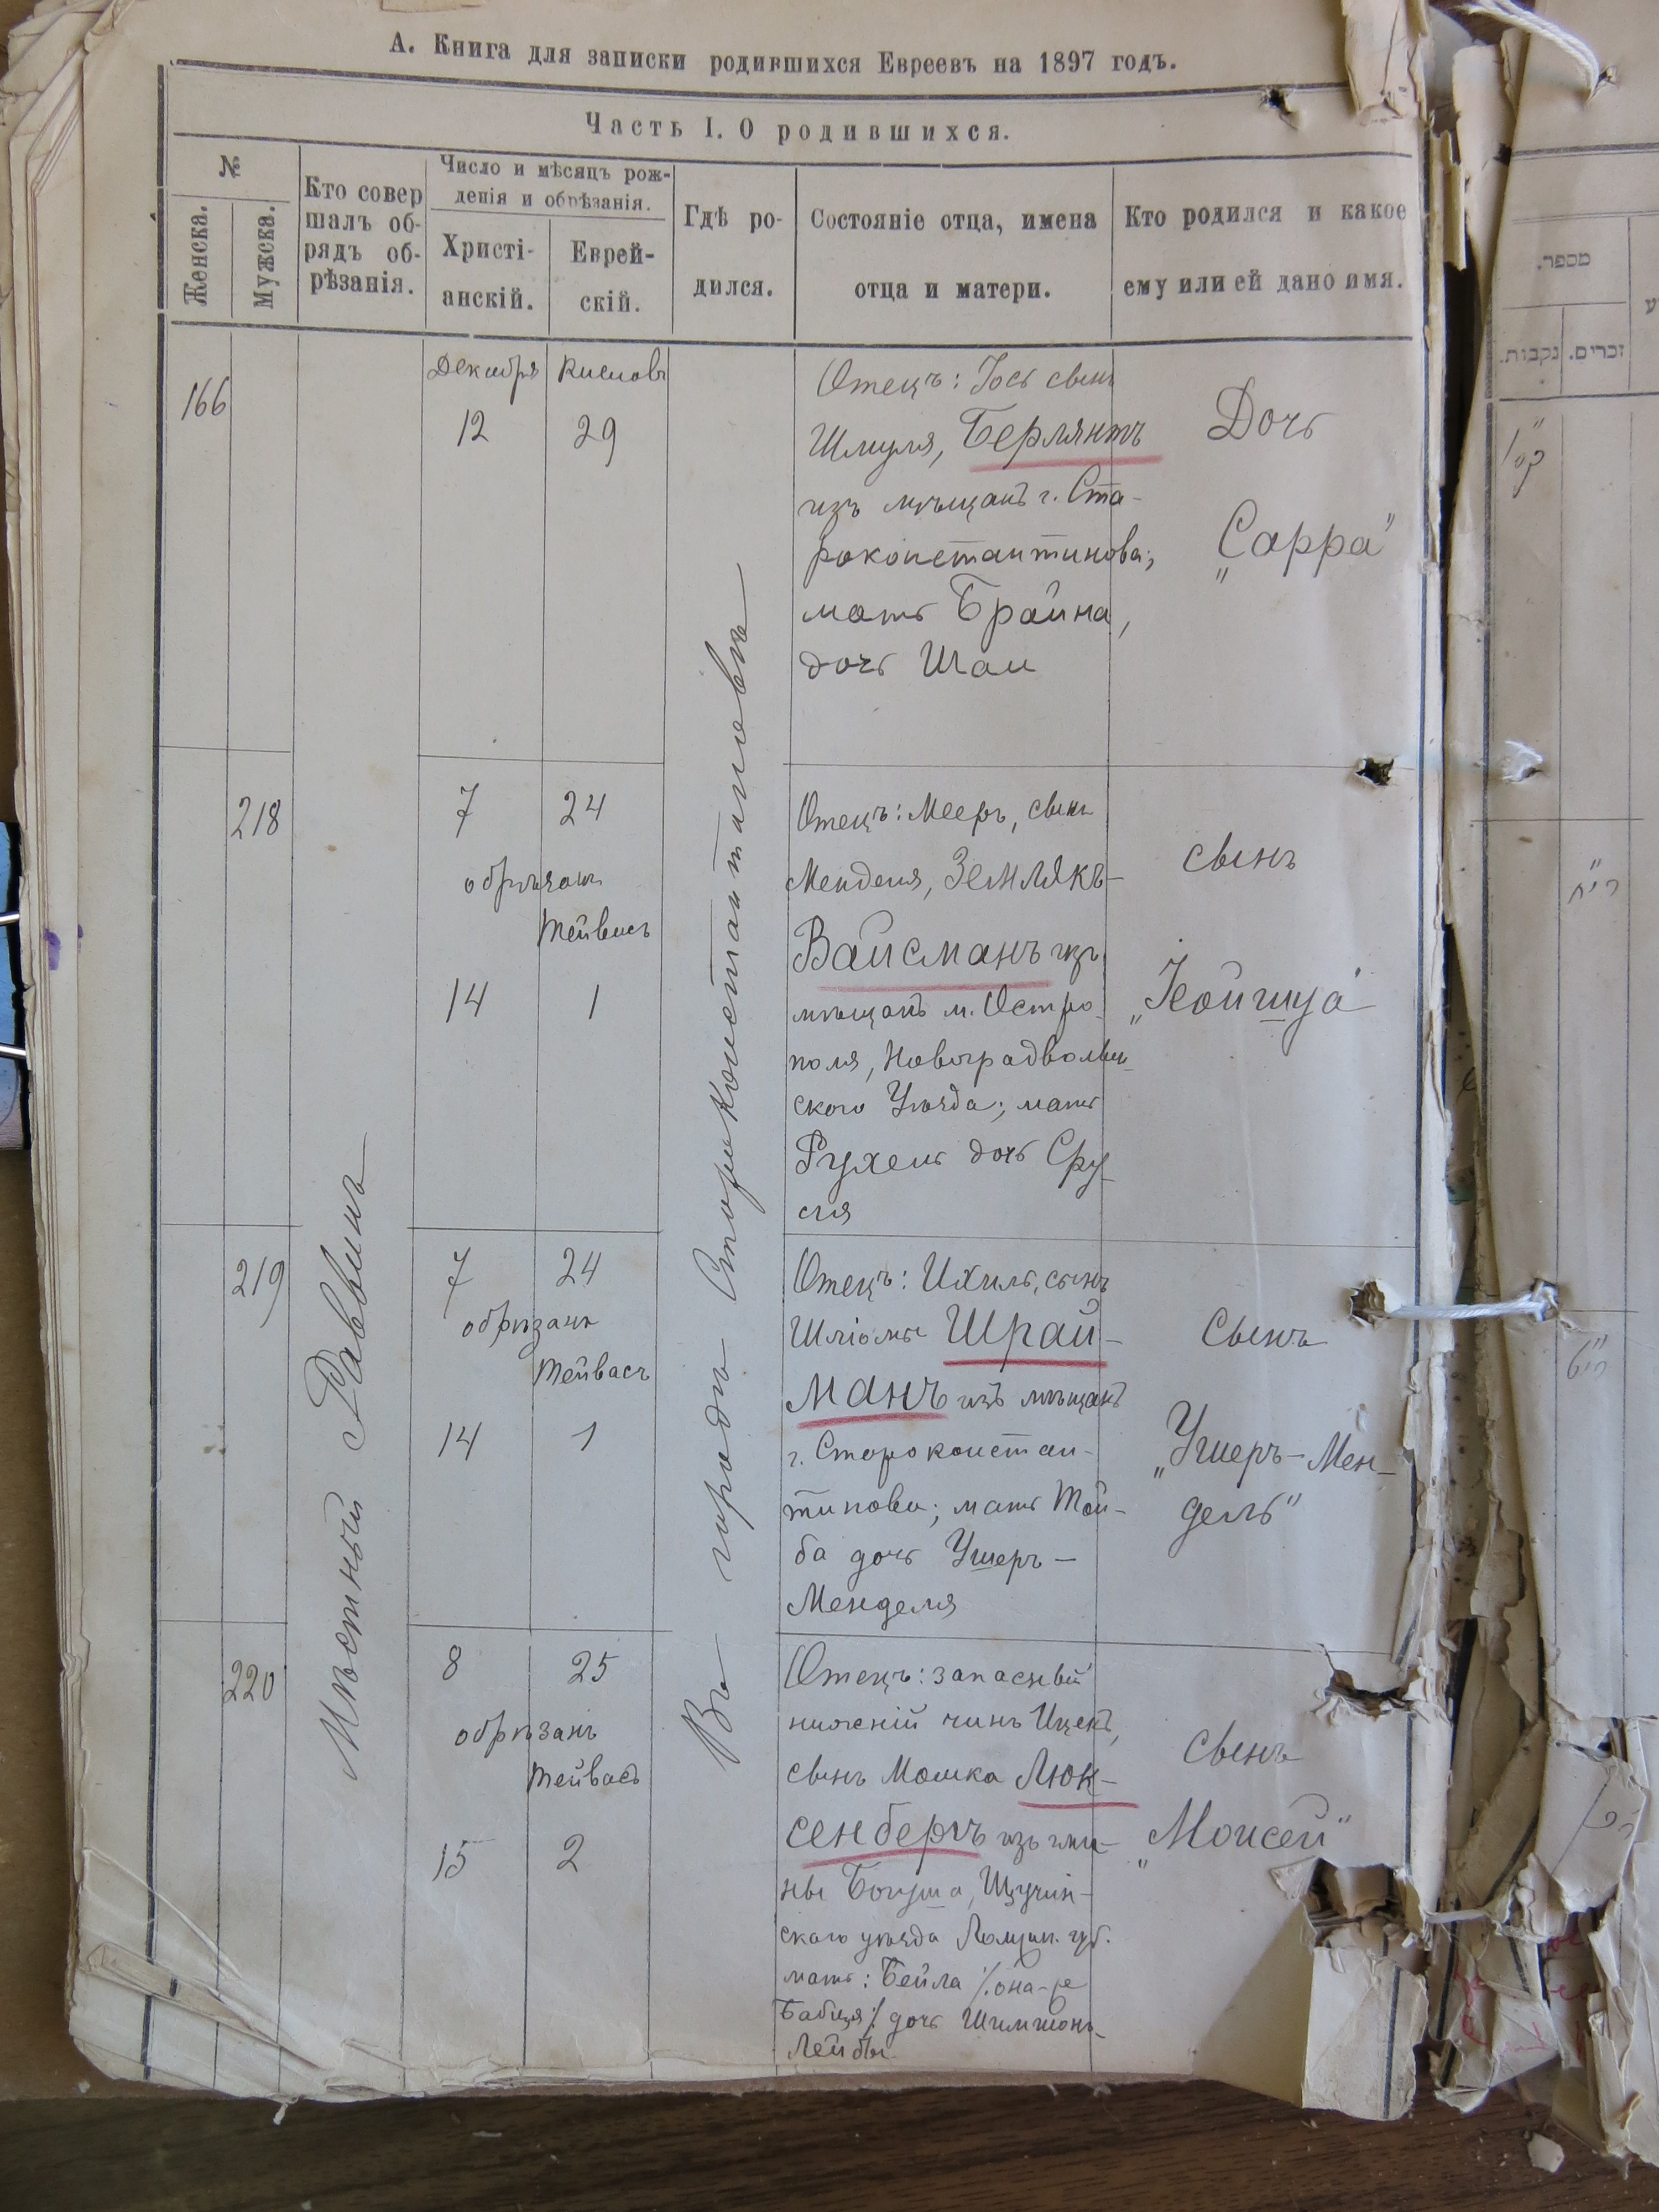 А. Книга для записки родившихся Евреевъ на 1897 годъ.
Часть I. О родившихся.
№
Женска.
Мужска.
Кто совер
шалъ об-
рядъ об-
рѣзанія.
Число и мѣсяцъ рож-
денія и обрѣзанія.
Христі-
анскій.
Еврей-
скій.
Гдѣ ро-
дился.
Состояніе отца, имена
отца и матери.
Кто родился и какое
ему или ей дано имя.
Мѣстный Раввинъ
Въ городѣ Староконстантиновѣ
166
Декабря
Кисловъ
12
29
Отецъ: Іось сынъ
Шмуля, Берлянтъ
изъ мѣщанъ г. Ста-
роконстантинова;
мать Брайна,
дочь Шаи
Дочь
„Сарра"
218
7
24
обрѣзанъ
Тейвасъ
14
1
Отецъ: Мееръ, сынъ
Менделя, Землякъ-
Вайсманъ изъ
мѣщанъ м. Остро-
поля, Новоградволын-
скаго Уѣзда; мать
Рухель дочь Сру-
ля
сынъ
219
7
24
обрѣзанъ
Тейвасъ
14
1
Отецъ: Ихиль, сынъ
Шліомы Шрай-
манъ изъ мѣщанъ
г. Староконстан-
тинова; мать Той-
ба дочь Ушеръ-
Менделя
Сынъ
„Ушеръ-Мен-
дель"
220
8
25
обрѣзанъ
Тейвасъ
15
2
Отецъ: запасный
нижній чинъ Ицекъ,
сынъ Мошка Люк-
сенбергъ изъ гми-
ны Богуша, Щучин-
скаго уѣзда Ломжин. губ.
мать: Бейла /. она-же
Бабця ./ дочь Шимшонъ-
Лейбы
Сынъ
„Моисей"
מספר.
נקבות.
זכרים.
קס"ו
רי"ח
רי"ט